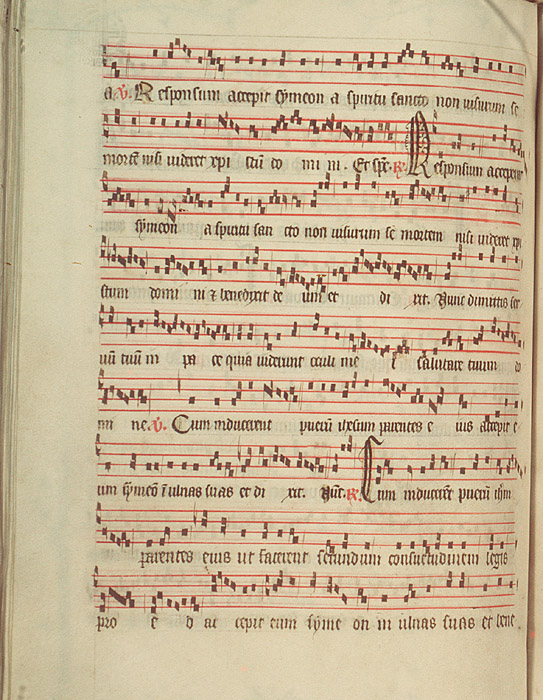 a. V. Responsum accepit symeon a spiritu sancto non uisurum se
morte nisi uideret xpi stū do mi ni. Et spc. R. Responsum accepit
symeon a spiritu san cto non uisurum se mortem nisi uideret xpi
stum domi ni & benedixit de um et di xit. Nunc dimittis ser
uū tuū in pa ce quia uiderunt oculi me i salutare tuum do
mi ne. V. Cum inducerent puerū ihesum parentes e ius accepit e
um symeō ī ulnas suas et di xit. Nūc. R. Cum inducerēt puerū ihm
parentes eius ut facerent secundum consuetudinem legis
pro e o ac cepit eum syme on in ulnas suas et bene